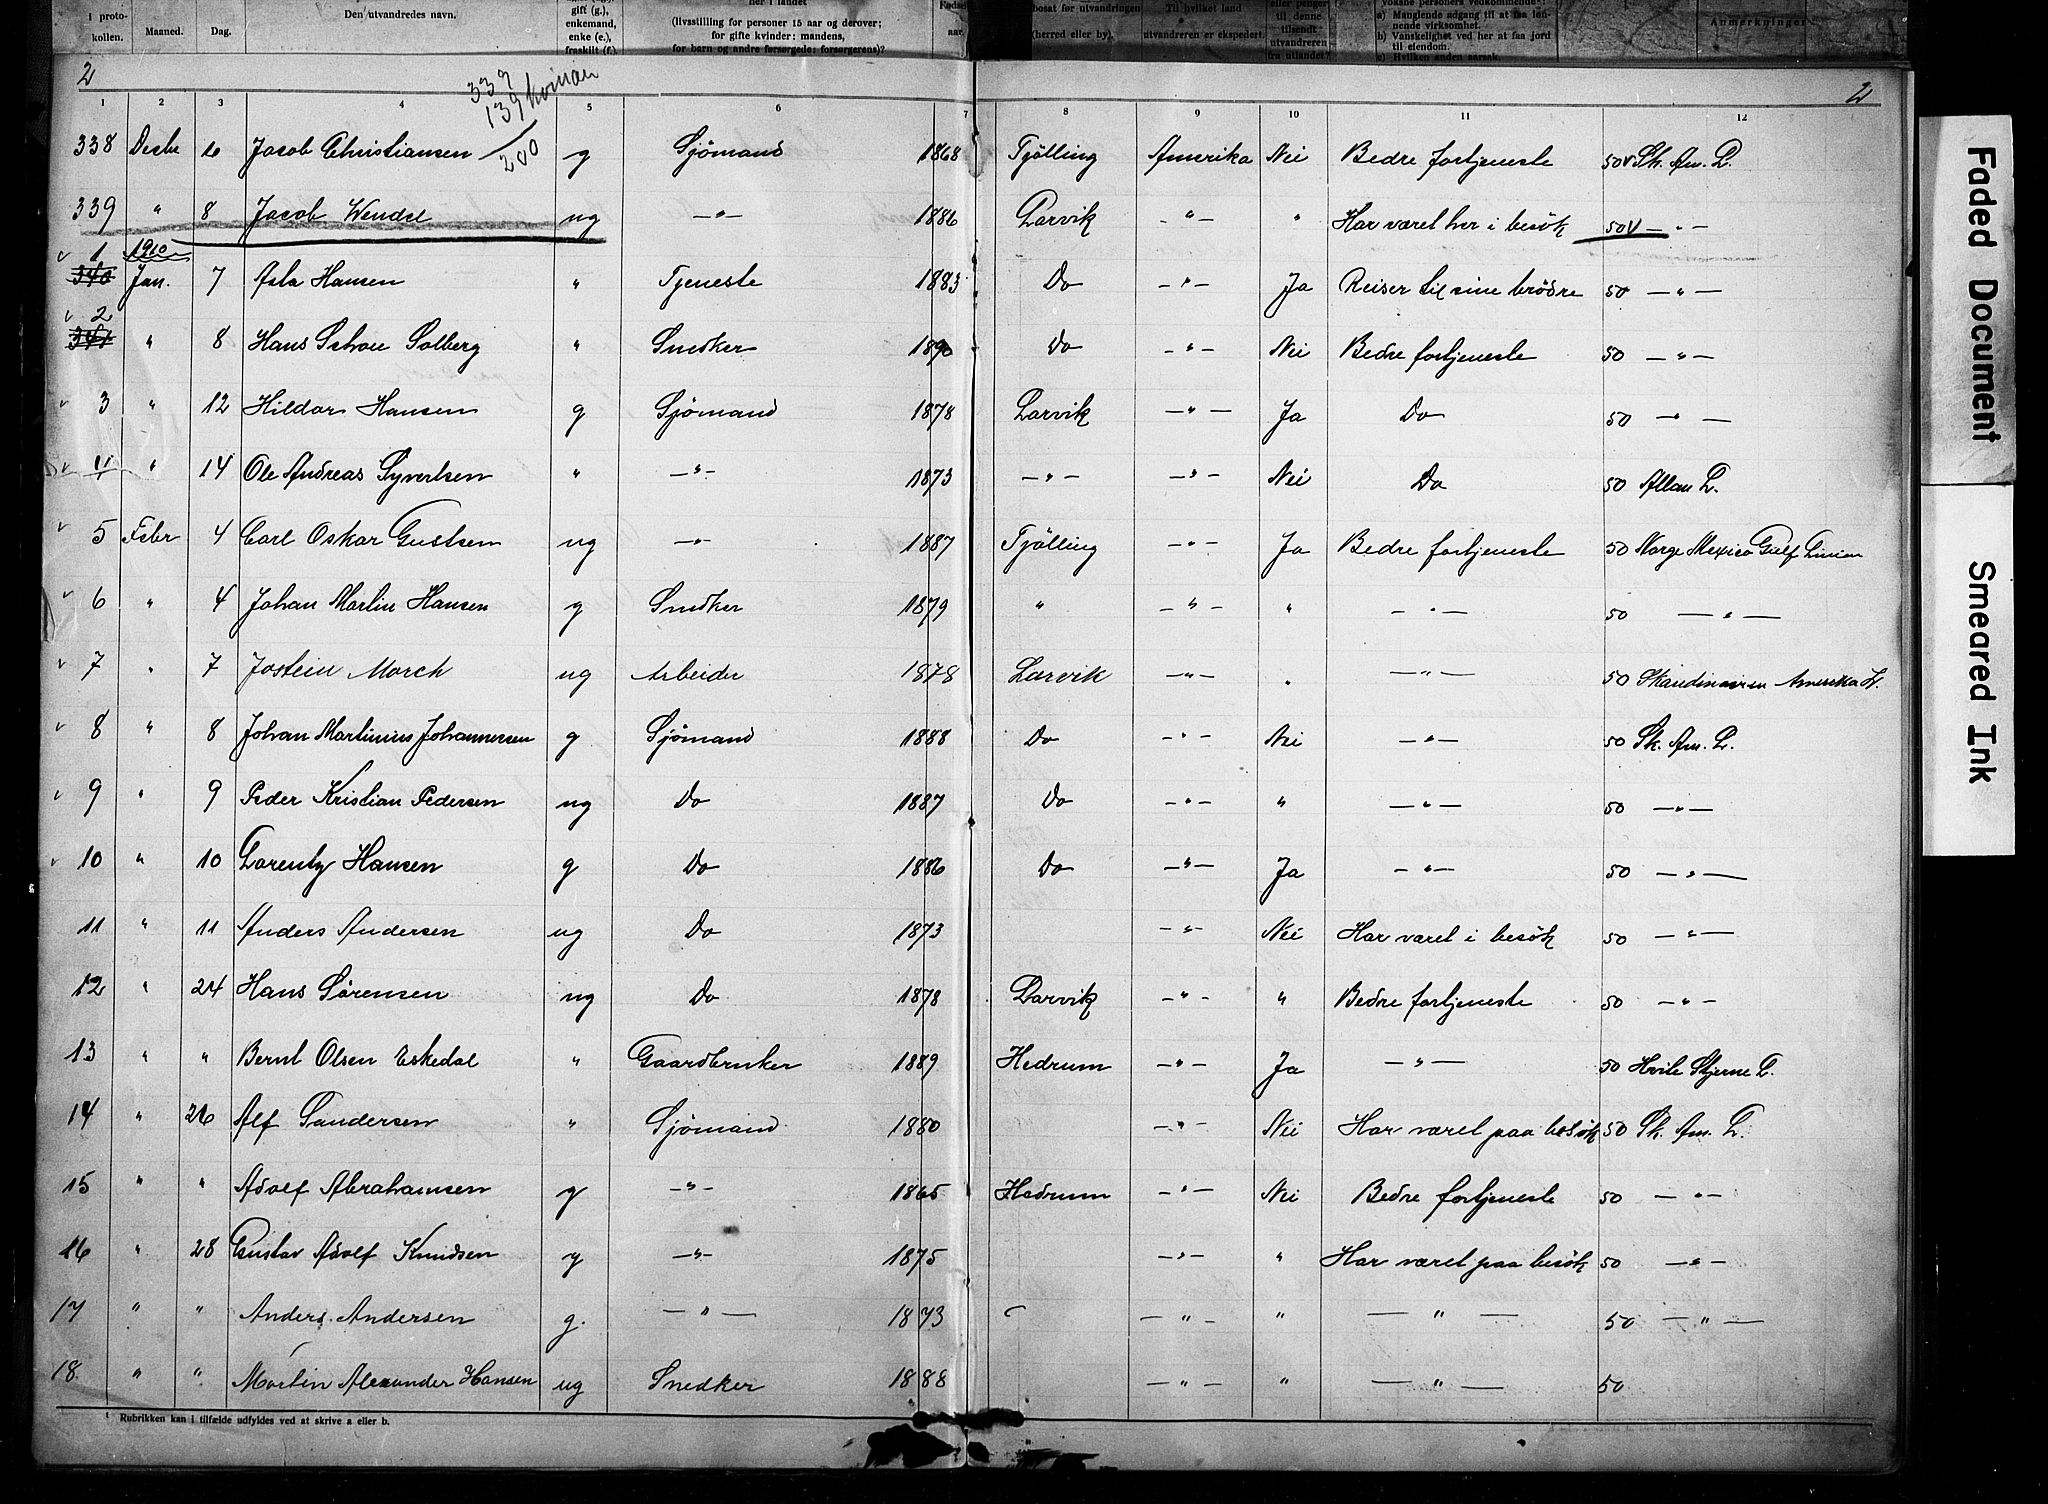 i proto-
kollen.
Maaned.
Dag.
Den utvandredes navn.
gift (g.),
enkemand,
enke (e.),
fraskilt (f.)
her i landet
(livsstilling for personer 15 aar og derover;
for gifte kvinder: mandens,
for barn og andre forsørgede: forsørgerens)?
Fødsels
aar.
bosat før utvandringen
(herred eller by).
Til hvilket land
utvandreren er ekspedert.
eller penger
til denne
tilsendt
utvandreren
fra utlandet?
a) Manglende adgang til at faa løn-
nende virksomhet.
b) Vanskelighet ved her at faa jord
til eiendom.
c) Hvilken anden aarsak.
Anmerkninger.
2 2
339
139 kvinder
200
1 2 3 4 5 6 7 8 9 10 11 12
338 Desbr 6 Jacob Christiansen g Sjömand 1868 Tjölling Amerika Nei Bedre fortjeneste 50 v Sk. Am. L.
339 " 8 Jacob Wendel ug —"— 1886 Larvik —"— " Har været her i besök 50 v —"—
1910
1 340 Jan. 7 Asla Hansen " Tjeneste 1883 Do —"— Ja Reiser til sine brödre 50 —"—
2 341 " 8 Hans Schou Solberg " Snedker 1890 Do —"— Nei Bedre fortjeneste 50 —"—
3 " 12 Hildar Hansen g Sjömand 1878 Larvik —"— Ja Do 50 —"—
4 " 14 Ole Andreas Syvertsen " —"— 1873 —"— —"— Nei Do 50 Allan L.
5 Febr 4 Carl Oskar Gustsen ug —"— 1887 Tjölling —"— Ja Bedre fortjeneste 50 Norge Mexico Gulf Linien
6 " 4 Johan Martin Hansen g Snedker 1879 " —"— " —"— 50 —"—
7 " 7 Jostein Morch ug Arbeider 1878 Larvik —"— " —"— 50 Skandinavien Amerika L.
8 " 8 Johan Martinius Johannessen g Sjömand 1888 Do —"— Nei —"— 50 Sk. Am. L.
9 " 9 Peder Kristian Pedersen ug Do 1887 Do —"— " —"— 50 —"—
10 " 10 Lorentz Hansen g Do 1886 Do —"— Ja —"— 50 —"—
11 " 11 Anders Andersen ug Do 1873 —"— Nei Har været i besök 50 —"—
12 " 24 Hans Sörensen ug Do 1878 Larvik —"— " Bedre fortjeneste 50 —"—
13 " " Bernt Olsen Eskedal " Gaardbruker 1889 Hedrum —"— Ja —"— 50 Hvite Stjerne L.
14 " 26 Alf Gundersen " Sjömand 1880 —"— Nei Har været paa besök 50 Sk. Am. L.
15 " " Adolf Abrahamsen g —"— 1865 Hedrum —"— Nei Bedre fortjeneste 50 —"—
16 " 28 Gustav Adolf Knudsen g —"— 1875 —"— " Har været paa besök 50 —"—
17 " " Anders Andersen g. —"— 1873 —"— " —"— 50 —"—
18. " " Martin Alexander Hansen ug Snedker 1888 —"— " —"— 50
¹ Rubrikken kan i tilfælde udfyldes ved at skrive a eller b.
Faded Document
Smeared Ink